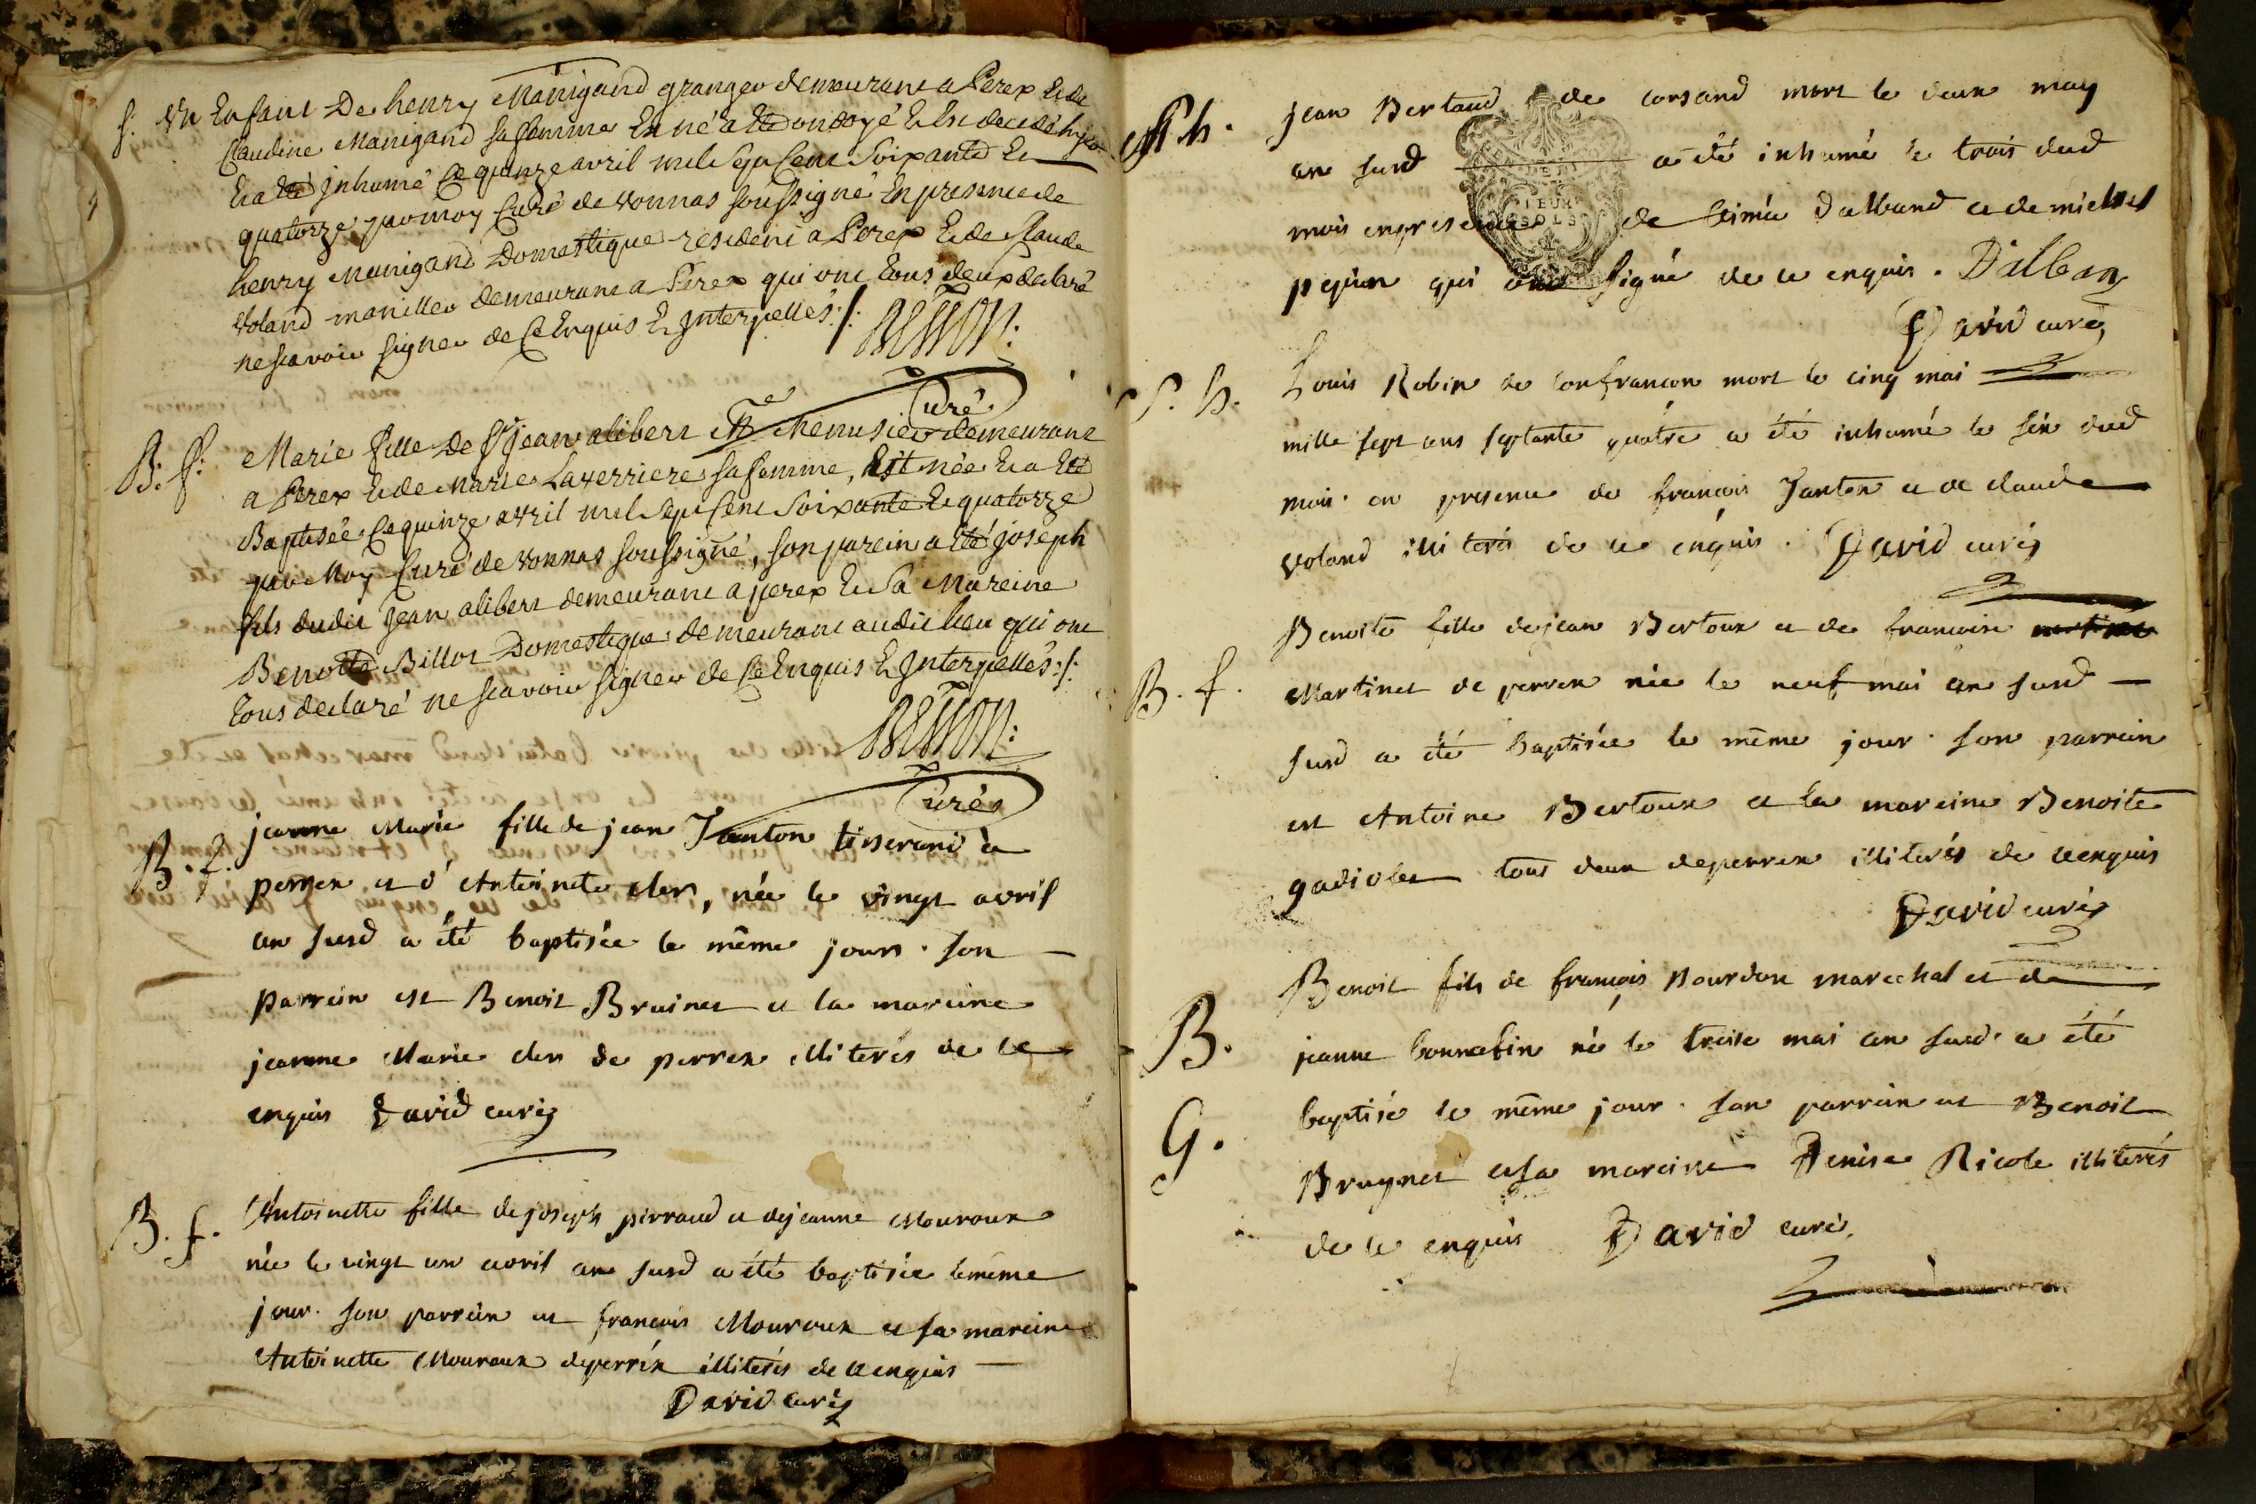 S. Un Enfant De henry Manigand granger demeurant a Perex Et de
Claudine Manigand sa femme Est né a Eté ondoyé Et Est decedé hyer
Et a Eté Inhumé Ce quinze avril mil sept Cent Soixante Et
quatorze par moy Curé de Vonnas soussigné En presence de
henry Manigand Domestique resident a Perex Et de Claude
Voland manillier demeurant a Perex qui ont tous deux declaré
ne scavoir signer de Ce Enquis Et Interpellés ./.
Curé
B. f. Marie fille de Sr jean alibert Me Menusier demeurant
a Perex Et de Marie Laverriere sa femme, Est née Et a Eté
Baptisée Ce quinze avril mil sept Cent Soixante Et quatorze
par Moy Curé de Vonnas soussigné, son parein a Eté joseph
fils dudit Jean alibert demeurant a perex Et Sa Mareine
Benoite Billot Domestique demeurant audit lieu qui ont
tous declaré ne scavoir signer de Ce Enquis Et Interpellés ./.
Curé
B. f. jeanne Marie fille de jean Janton tisserand à
perrex et d'Antoinette cler, née le vingt avril
an susd a été baptisée le même jours. son
parrein est Benoit Bruinet et la mareine
jeanne Marie cler de perrex illiterés de ce
enquis David curé
B. f. Antoinette fille de joseph pirraud et de jeanne Mouroux
née le vingt un avril an susd a été baptisée le même
jour. son parrein est francois Mouroux et sa mareine
Antoinette Mouroux de perrex illiterés de ce enquis
David curé
S. h. jean Bertaud de corsand mort le deux may
an susd a été inhumé le trois dud
mois en presence de Aimée Dalband et de michel
pejun qui ont signé de ce enquis. Dalban
David curé
S. h. Louis Robin de confrancon mort le cinq mai
mille sept cens septante quatre a été inhumé le six dud
mois en presence de francois Janton et de claude
voland illiterés de ce enquis. David curé
B. f. Benoite fille de jean Bertoux et de francoise
Martinet de perrex née le neuf mai an susd
susd a été baptisée le même jour. son parrein
est Antoine Bertoux et la mareine Benoite
gadiolet tous deux de perrex illiterés de ce enquis
David curé
B. G. Benoit fils de françois Bourdon marechal et de
jeanne bonnetin né le treise mai an susd a été
baptisé le même jour. son parrein est Benoit
Bruynet et sa mareine Denise Nicole illiterés
de ce enquis David curé.